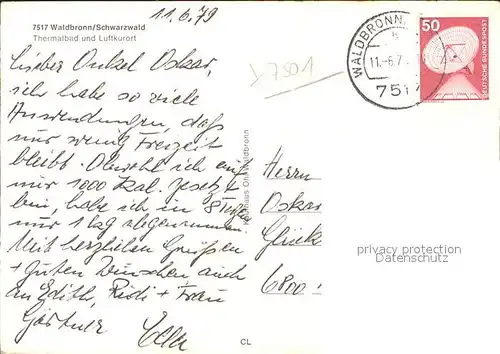 11.6.79
7517 Waldbronn/Schwarzwald
Thermalbad und Luftkurort
Lieber Onkel Oskar,
ich habe so viele
Anwendungen, daß
nur wenig Freizeit
bleibt. Obwohl ich auf
nur 1000 Kal. gesetzt
bin, habe ich in 8 Tagen
nur 1 kg abgenommen.
Mit herzlichen Grüßen
+ guten Wünschen auch
an Edith, Rudi + Frau
Gärtner
Ella
WALDBRONN
11.-6.7
7517
50
DEUTSCHE BUNDESPOST
Herrn
Oskar
Glück
6800
privacy protection
Datenschutz
CL